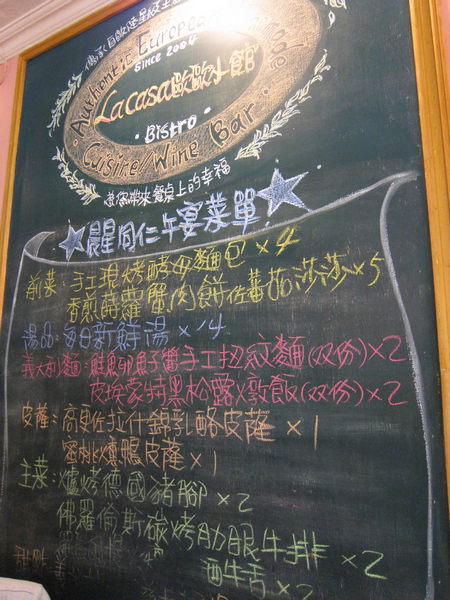 傳承自歐陸星級主廚
Authentic European
Since 2004
La casa 歐歐小館
·Bistro·
Cuisine/Wine Bar
為您帶來餐桌上的幸福
★晨同仁午宴菜單★
前菜:手工現烤酵母麵包×4
香煎蒔蘿蟹肉餅佐蕃茄莎莎×5
湯品:每日新鮮湯×14
義大利麵:鮭魚卵魚子醬手工扭紋麵(双份)×2
皮埃蒙特黑松露X燉飯(双份)×2
皮薩:高更佐拉什錦乳酪皮薩×1
蜜桃火燻鴨皮薩×1
主菜:爐烤德國豬腳×2
佛羅倫斯碳烤肋眼牛排×2
酒牛舌×2
甜點: